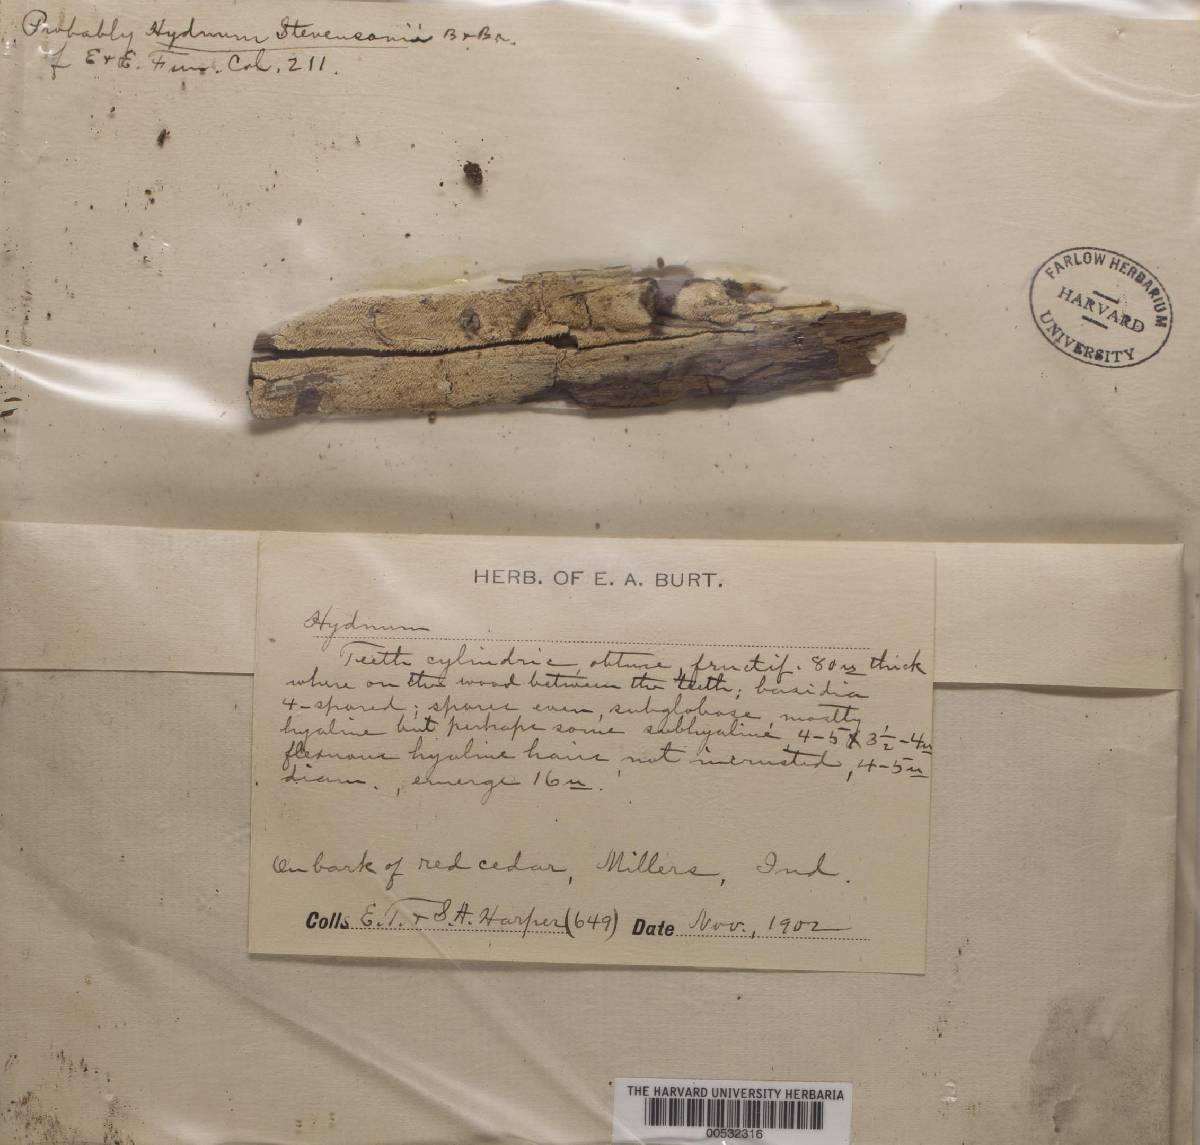 Probably Hydnum Stevensonii B & Br.
of E & E. Fun. Col. 211.
FARLOW HERBARIUM
HARVARD
UNIVERSITY
HERB. OF E. A. BURT.
Hydnum
Teeth cylindric, obtuse, fructif. 80µ thick
where on the wood between the teeth; basidia
4-spored; spores even, subglobose, mostly
hyaline but perhaps some subhyaline, 4-5 x 3½-4µ
flexuous hyaline hairs, not incrusted, 4-5µ
diam., emerge 16µ.
On bark of red cedar, Millers, Ind.
Colls E. T. & S. A. Harper (649) Date Nov., 1902
THE HARVARD UNIVERSITY HERBARIA
00532316